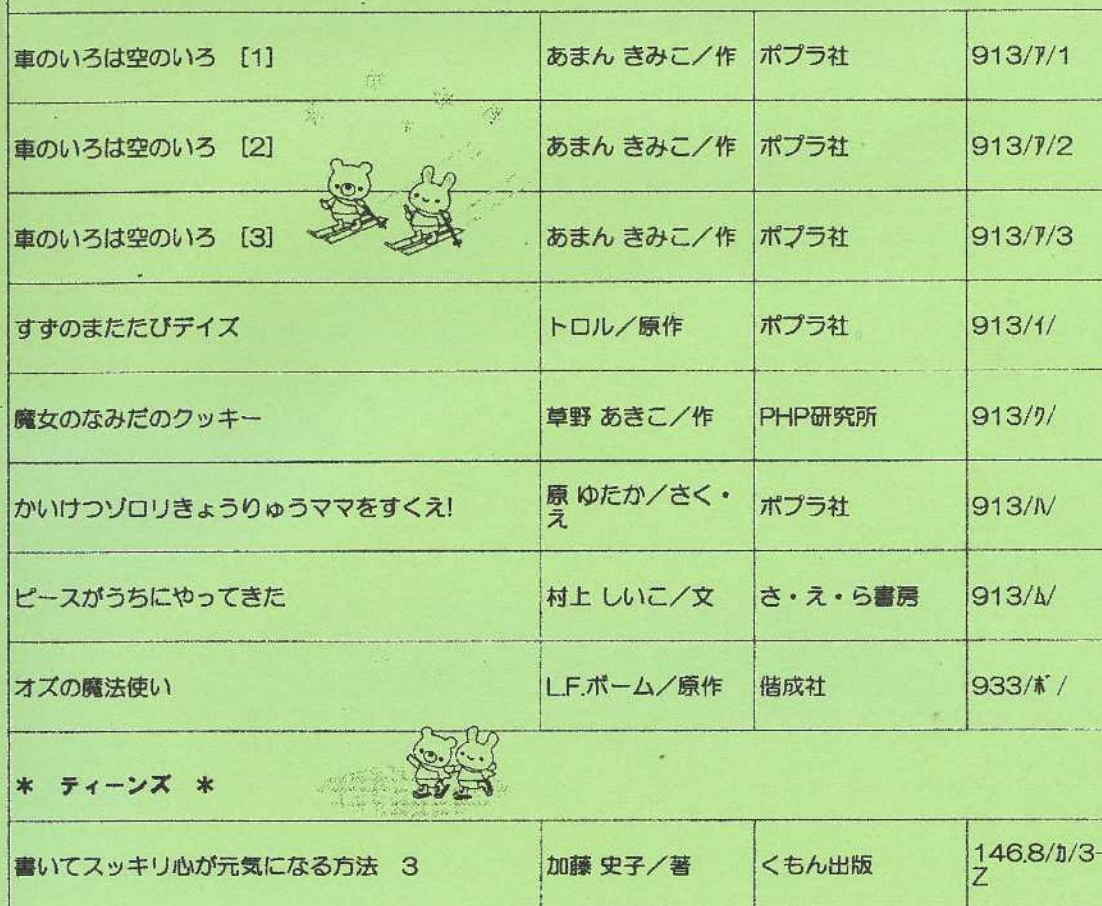 車のいろは空のいろ [1] あまん きみこ／作 ポプラ社 913/ｱ/1
車のいろは空のいろ [2] あまん きみこ／作 ポプラ社 913/ｱ/2
車のいろは空のいろ [3] あまん きみこ／作 ポプラ社 913/ｱ/3
すずのまたたびデイズ トロル／原作 ポプラ社 913/ｲ/
魔女のなみだのクッキー 草野 あきこ／作 PHP研究所 913/ｸ/
かいけつゾロリきょうりゅうママをすくえ! 原 ゆたか／さく・ ポプラ社 913/ﾊ/
え
ピースがうちにやってきた 村上 しいこ／文 さ・え・ら書房 913/ﾑ/
オズの魔法使い L.F.ボーム／原作 偕成社 933/ﾎﾞ/
＊ ティーンズ ＊
書いてスッキリ心が元気になる方法 3 加藤 史子／著 くもん出版 146.8/ｶ/3-
Z